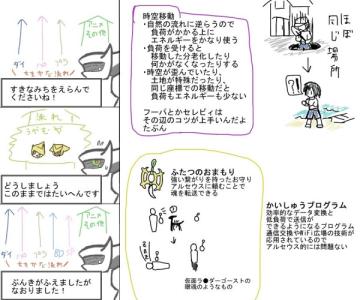 アニメ
その他
ダイ
パラ
大まかな流れ
すきなみちをえらんで
くださいね！
流れ
うがむや
どうしましょう
このままではたいへんです
アニメ
その他
ダイ
パラ
BD
SP
大まかな流れ
ぶんきがふえましたが
なおりました！
時空移動
・自然の流れに逆らうので
負荷がかかる上に
エネルギーをかなり使う
・負荷を受けると
移動した分老化したり
何かがなくなったりする
・時空が歪んでいたり、
土地が特殊だったり、
同じ座標での移動だと
負荷もエネルギーも少ない
フーパとかセレビィは
その辺のコツが上手いんだよ
たぶん
ほぼ
同じ場所
?!
ふたつのおまもり
強い繋がりを持ったお守り
アルセウスに頼むことで
魂を転送できる
仮面ラ●ダーゴーストの
眼魂のようなもの
かいしゅうプログラム
効率的なデータ変換と
低負荷で送信が
できるようになるプログラム
通信交換やWiFi広場の技術が
応用されているので
アルセウス的には問題ない